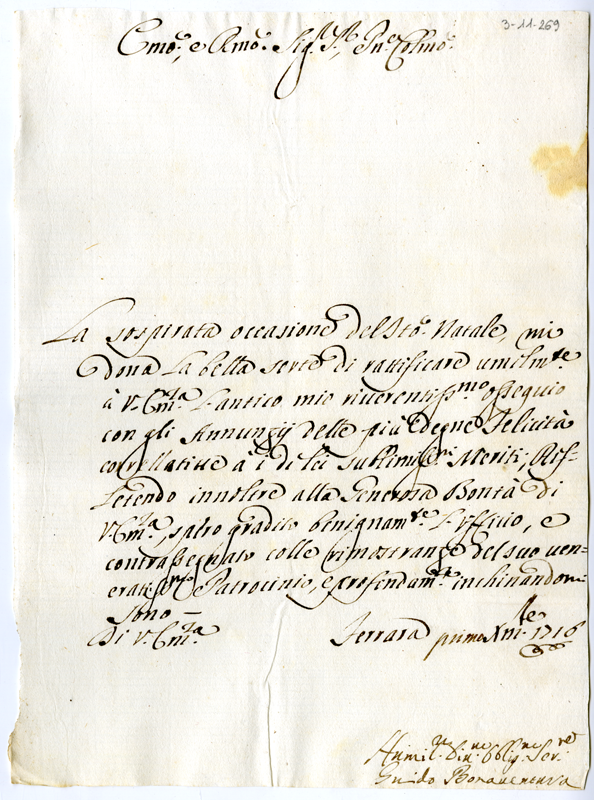 3-11-269
Emo:, e Rmo: Sigr. Pr., Pne Colmo:
La sospirata occasione del Sto: Natale, mi
dona la bella sorte di rattificare umilmte
à V. Emza l'antico mio riverentissmo ossequio
con gli Annunzij delle più degne Felicità
correllative à i di lei sublimissmi Meriti; Rif-
letendo innoltre alla Generosa Bontà di
V. Emza, spero gradito benignamte l'Ufficio, e
contrassegnato colle rimostranze del suo ven=
eratissmo Patrocinio, e profondamte inchinandomi
sono —
Di V. Emza
Ferrara primo Xmbre 1716
Humilmo Divmo Obligmo Servre
Guido Bonaventura